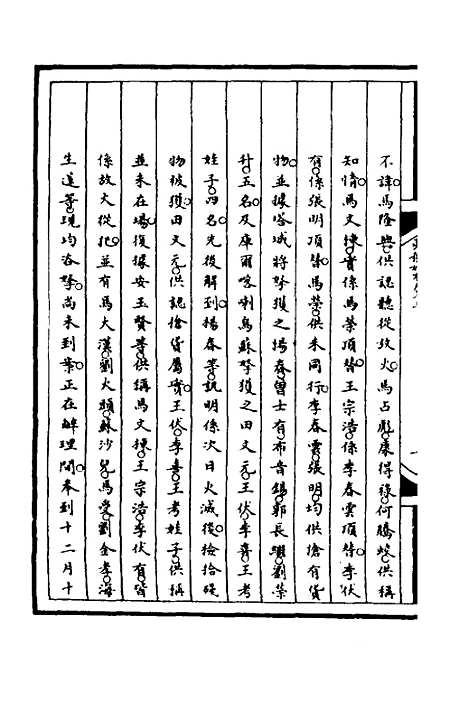 不諱馬隆興供認聽從放火馬占彪康得祿何騰蛟供稱
知情馬文棟實係馬榮頂替王宗浩係李春雲頂替李伏
有係張明頂替馬榮供未同行李春雲張明均供搶有貨
物並據塔城將拏獲之揚春曽士有布音錫郭長
升五名及庫爾喀喇烏蘇拏獲之田文元王伏李喜王考
娃子四名先後解到揚春等訊明係次日火滅後檢拾殘
物被獲田文元供認搶貨屬實王伏李喜王考娃子供稱
並未在場復據安玉賢等供稱馬文棟王宗浩李伏有皆
係放火從犯並有馬大漢劉火頭蘇沙兒馬受劉金孝海
生蓮等現均咨拏尚未到案正在辦理間奉到十二月十